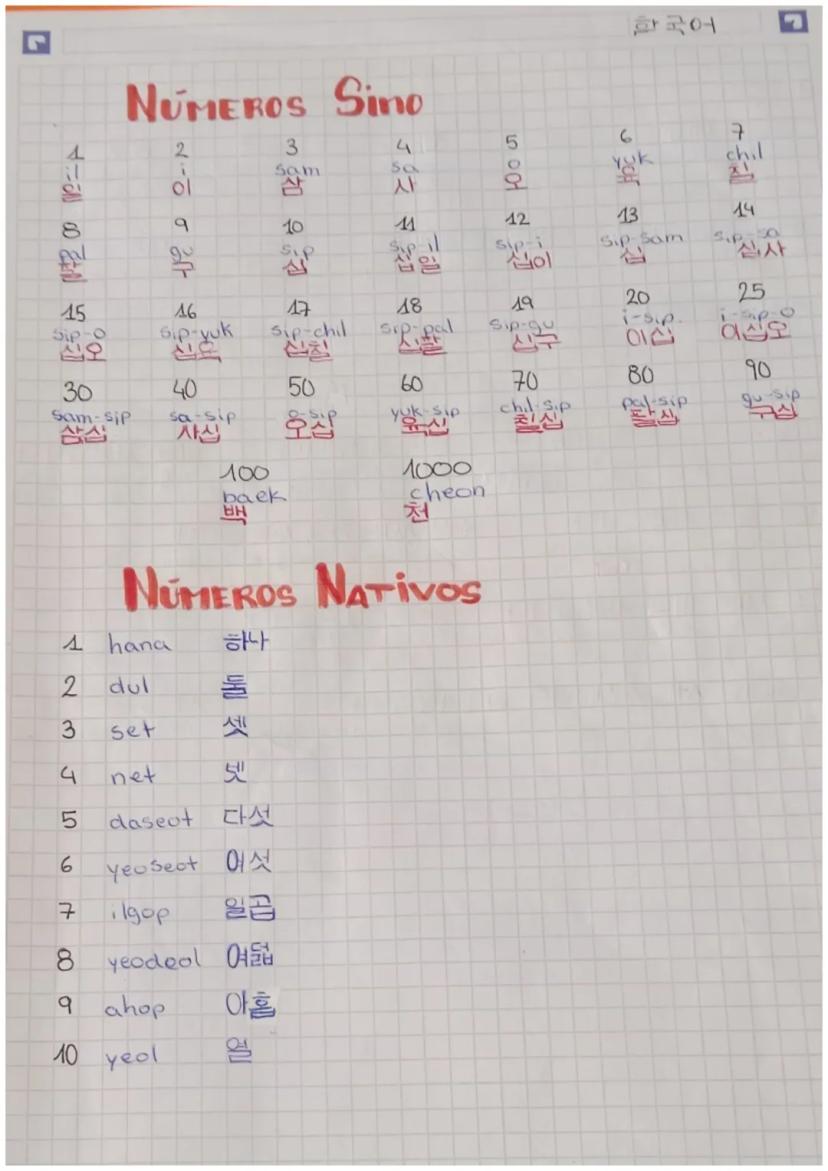 한국어
NÚMEROS Sino
1 2 3 4 5 6 7
il i sam sa o yuk chil
일 이 삼 사 오 육 칠
8 9 10 11 12 13 14
pal gu sip sip-il sip-i sip-sam sip-sa
팔 구 십 십일 십이 십 십사
15 16 17 18 19 20 25
sip-o sip-yuk sip-chil sip-pal sip-gu i-sip i-sip-o
십오 십육 십칠 십팔 십구 이십 이십오
30 40 50 60 70 80 90
sam-sip sa-sip o-sip yuk-sip chil-sip pal-sip gu-sip
삼십 사십 오십 육십 칠십 팔십 구십
100 1000
baek cheon
백 천
NÚMEROS NATiVOS
1 hana 하나
2 dul 둘
3 set 셋
4 net 넷
5 daseot 다섯
6 yeoseot 여섯
7 ilgop 일곱
8 yeodeol 여덟
9 ahop 아홉
10 yeol 열